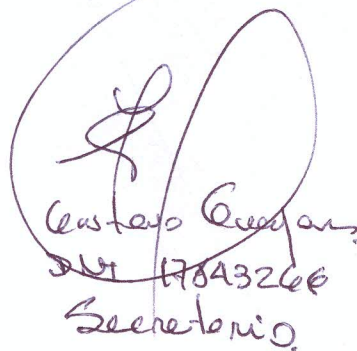 Gustavo
DNI 17843266
Secretario